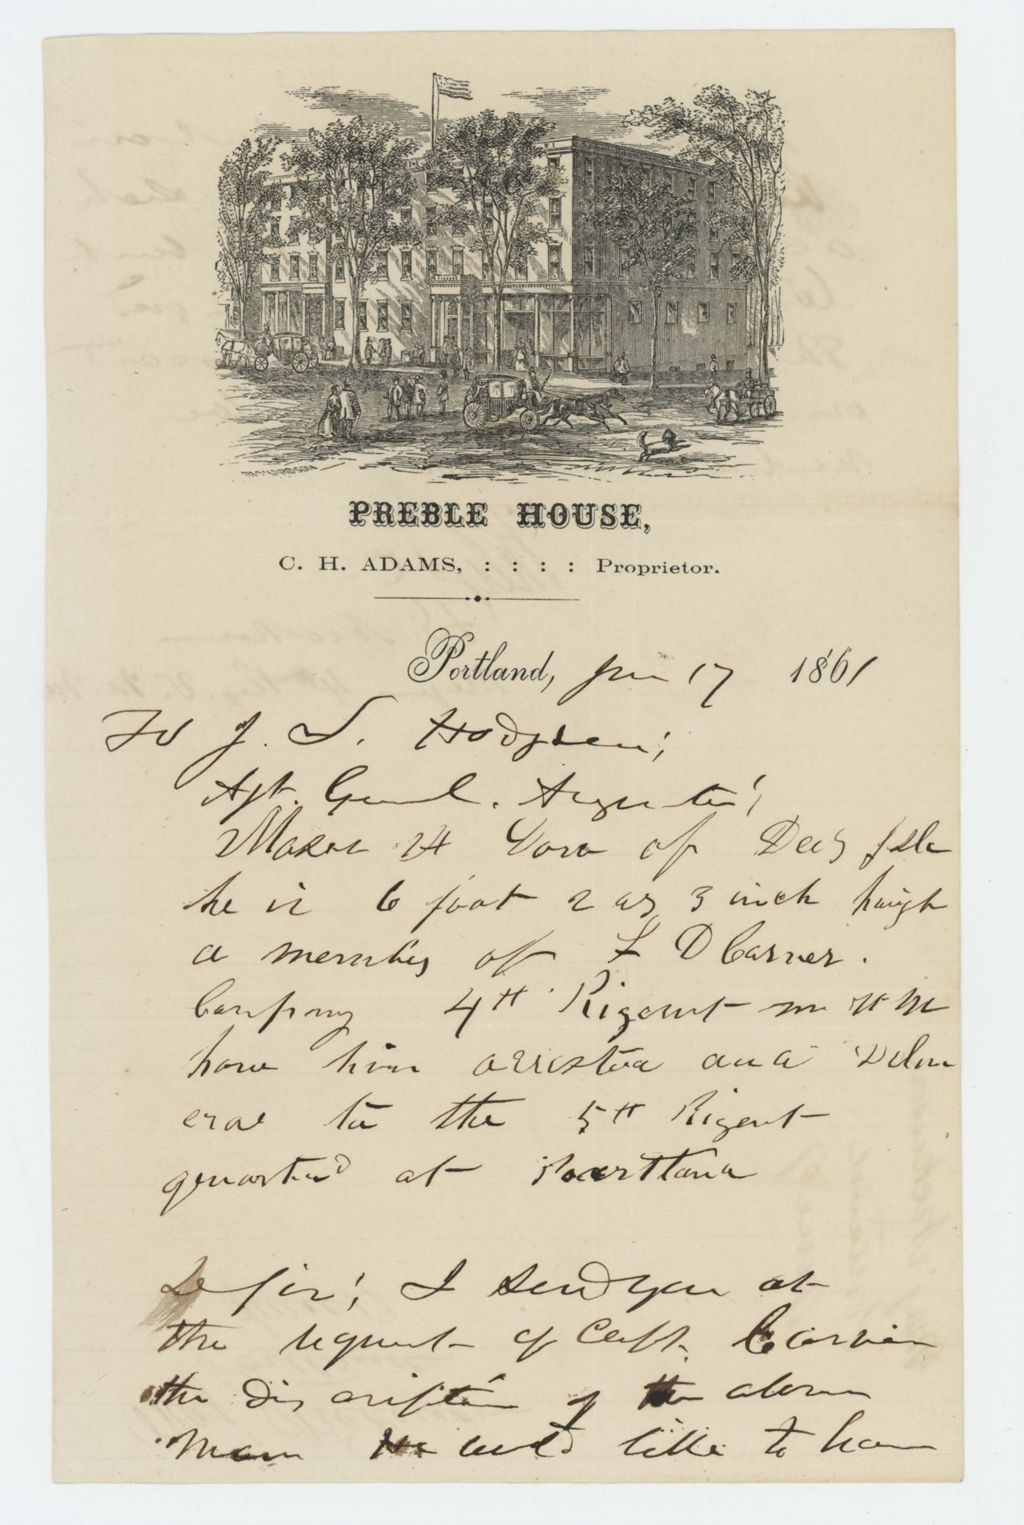 PREBLE HOUSE,
C. H. ADAMS, : : : : Proprietor.
Portland, Jun 17 1861
To J. L. Hodgsdon;
Ajt. Genl. Augusta!
24 of Deer Isle
he is 6 foot 2 or 3 inch high
a member of L D Carver.
Company 4th Rigemt M
have him arrested and Deliv
ered to the 5th Rigent
quarterd at Porttland
D Sir! I send you at
the request of Capt. Carver
the discription of the above
man He would like to have